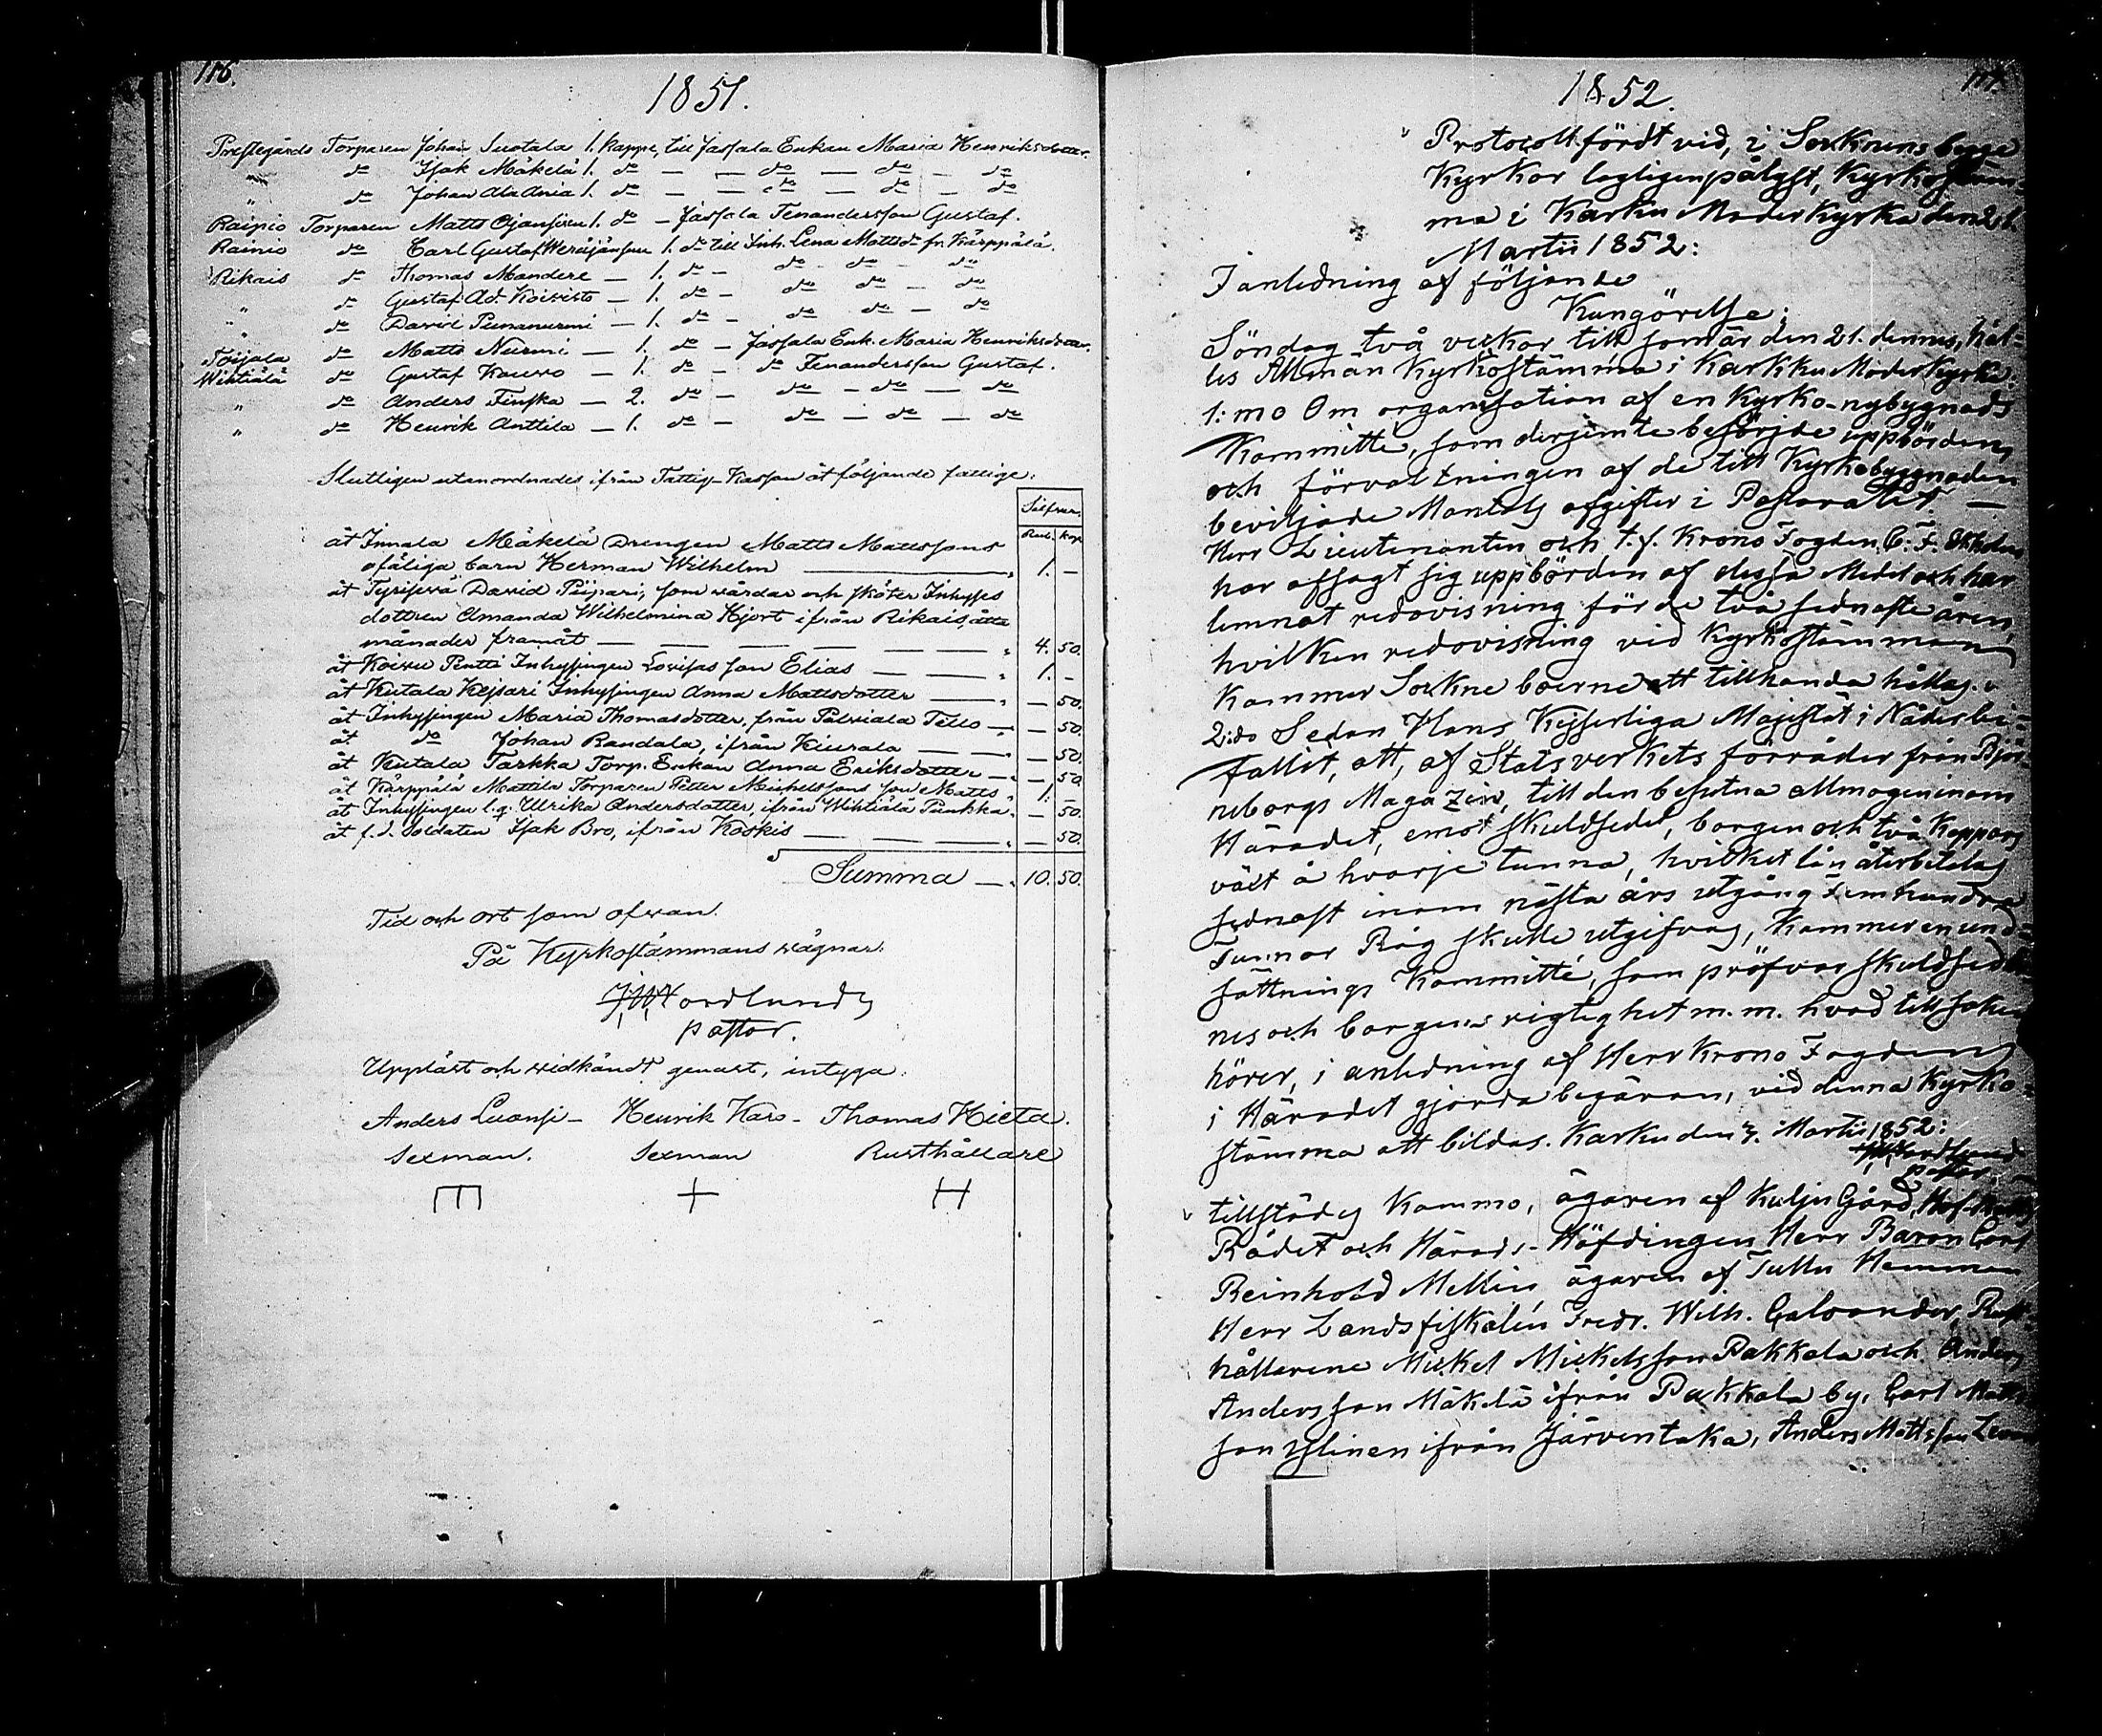 116.
1851.
Prestegårds Torparen Johan Suotala 1. kappe, till Jassala Enkan Maria Henriksdotter.
" do Isak Mäkelä 1. do — — do — do — do
" do Johan Ala Ania 1. do — — do — do — do
Rainio Torparen Matts Ojansuu 1. do — Jassala Fenandersson Gustaf.
Rainio do Carl Gustaf 1. do till Inh. Lena Mattsdr fr. Kärppälä.
Rikais do Thomas Mandere — 1. do — do — do — do
" do Gustaf Ad. Koivisto — 1. do — do do — do
" do David Punanurmi — 1. do — do do — do
Toijala do Matts Nurmi — 1. do — Jassala Enk. Maria Henriksdotter.
Wihtiälä do Gustaf Kauro — 1. do — do Fenandersson Gustaf.
" do Anders Finska — 2. do — do — do — do
" do Henrik Anttila — 1. do — do — do — do
Slutligen utanordnades ifrån Fattig-Kassan åt följande fattige:
Silfver.
Rub. Kop.
åt Innala Mäkelä Drengen Matts Mattssons
ofäliga barn Herman Wilhelm — " 1. —
åt Tyrisevä David Piipari, som vårdar och sköter Inhyses
dottren Amanda Wilhelmina Hjort ifrån Rikais, åtta
månader framåt — — — — — " 4. 50.
åt Koivu Pentti Inhysingen Lovisas son Elias — — " 1. —
åt Kutala Kejsari Inhysingen Anna Mattsdotter — " — 50.
åt Inhysingen Maria Thomasdotter, från Palviala Tello — " — 50.
åt do Johan Randala, ifrån Kiurala — — " — 50.
åt Kutala Tarkka Torp. Enkan Anna Eriksdotter — " — 50.
åt Kärppälä Mattila Torparen Petter Michelssons son Matts " 1. —
åt Inhysingen l.q. Ulrika Andersdotter, ifrån Wihtiälä Punkka " — 50.
åt f.d. Soldaten Isak Bro, ifrån Koskis — — " — 50.
Summa — " 10. 50.
Tid och ort som ofvan.
På Kyrkostämmans vägnar:
J.W. Nordlund
pastor.
Uppläst och vidkändt genast, intyga:
Anders Luonsi — Henrik Karo — Thomas Hieta.
Sexman. Sexman Rusthållare
1852.
Protocoll fördt vid, i Socknens begge
Kyrkor lagligen pålyst, Kyrkostäm-
ma i Karku Moder Kyrka den 21.
Martii 1852:
I anledning af följande
Kungörelse:
Söndag två veckor till som är den 21. dennes, hål-
les Allmän Kyrkostämma i Karkku Moderkyrka:
1:mo Om organisation af en Kyrko-nybygnads
Kommitté, som derjemte besörjde uppbörden
och förvaltningen af de till Kyrkobyggnaden
beviljade Mantals afgifter i Pastoratet —
Herr Lieutenanten och t.f. Krono Fogden C. F.
har afsagt sig uppbörden af dessa Medel och har
lemnat redovisning för de två sednaste åren,
hvilken redovisning vid Kyrkostämman
kommer Sockneboerne att tillhanda hållas.
2:do Sedan Hans Kejserliga Majestät i Nåder be-
fallit, att, af Statsverkets förråder från Björ-
neborgs Magazin, till den besutna Allmogen inom
Häradet, emot skuldsedel, borgen och två Kappars
växt å hvarje tunna, hvilket lån återbetalas
sednast inom nästa års utgång Femhundra
Tunnor Råg skulle utgifvas, kommer en und-
sättnings Kommitté, som pröfvar skuldsedlar-
nes och borgens rigtighet m. m. hvad till saken
hörer, i anledning af Herr Krono Fogdens
i Häradet gjorda begäran, vid denna Kyrko-
stämma att bildas. Karku den 7. Martii 1852:
J.W. Nordlund
pastor
tillstädes kommo, ägaren af Kulju Gård, Hof Rätts
Rådet och Härads-Höfdingen Herr Baron Carl
Reinhold Mellin, ägaren af Tullu Hemman
Herr Landsfiskalen Fredr. Wilh. Calvander, Rust-
hållarene Mickel Mickelsson Pakkala och Anders
Andersson Mäkelä ifrån Pakkala by, Carl Matts
son Yslinen ifrån Järventaka, Anders Mattsson